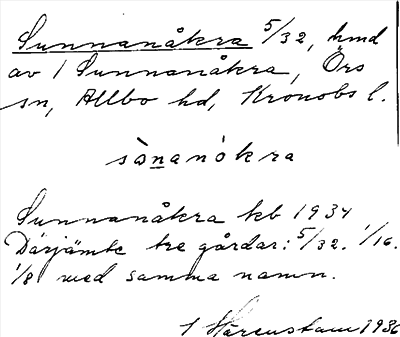 Sunnanåkra 5/32, hmd
av 1 Sunnanåkra, Örs
sn, Allbo hd, Kronobs l.
sònanòkra
Sunnanåkra kb 1934
Därjämte tre gårdar: 5/32. 1/16.
1/8 med samma namn.
1936